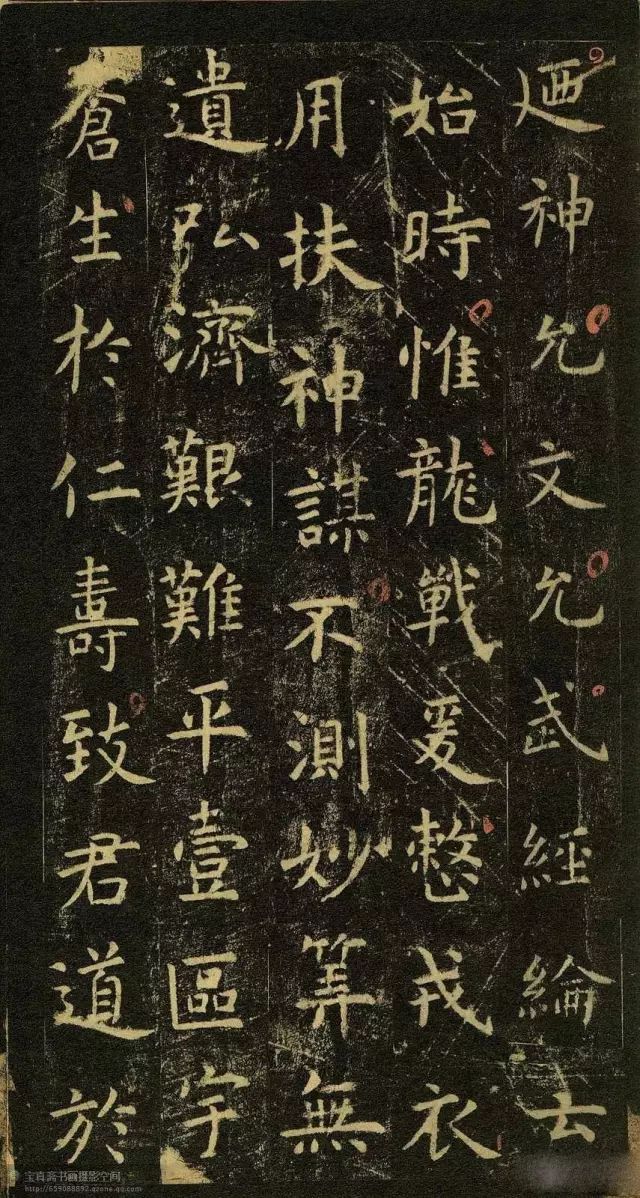 廼神允文允武經綸云
始時惟龍戰爰整戎衣
用扶神謀不測妙筭無
遺弘濟艱難平壹區宇
倉生於仁壽致君道於
宝真斋书画摄影空间
http://659088892.qzone.qq.com/